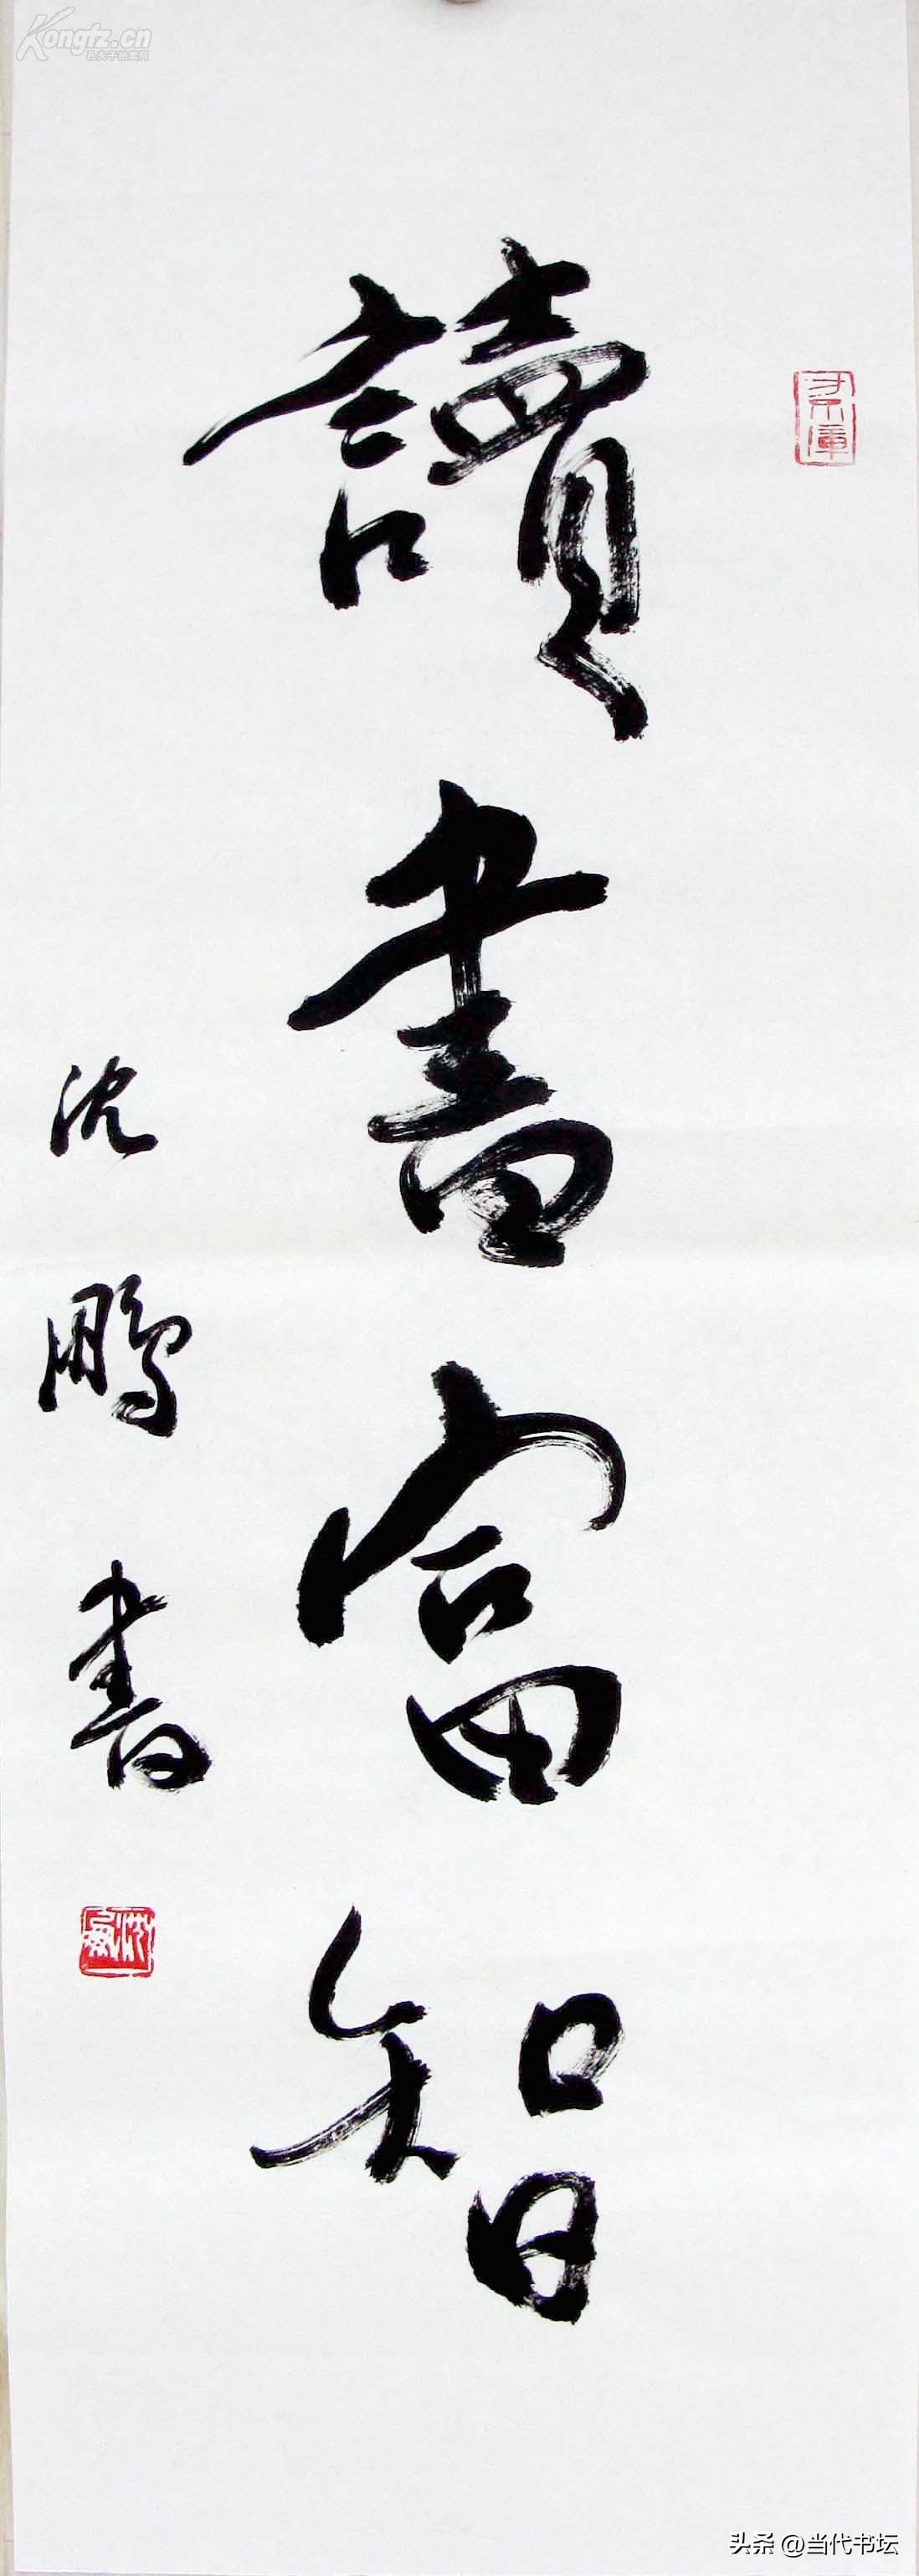 Kongfz.cn
孔夫子拍卖网
讀書富智
沈鵬書
头条 @当代书坛